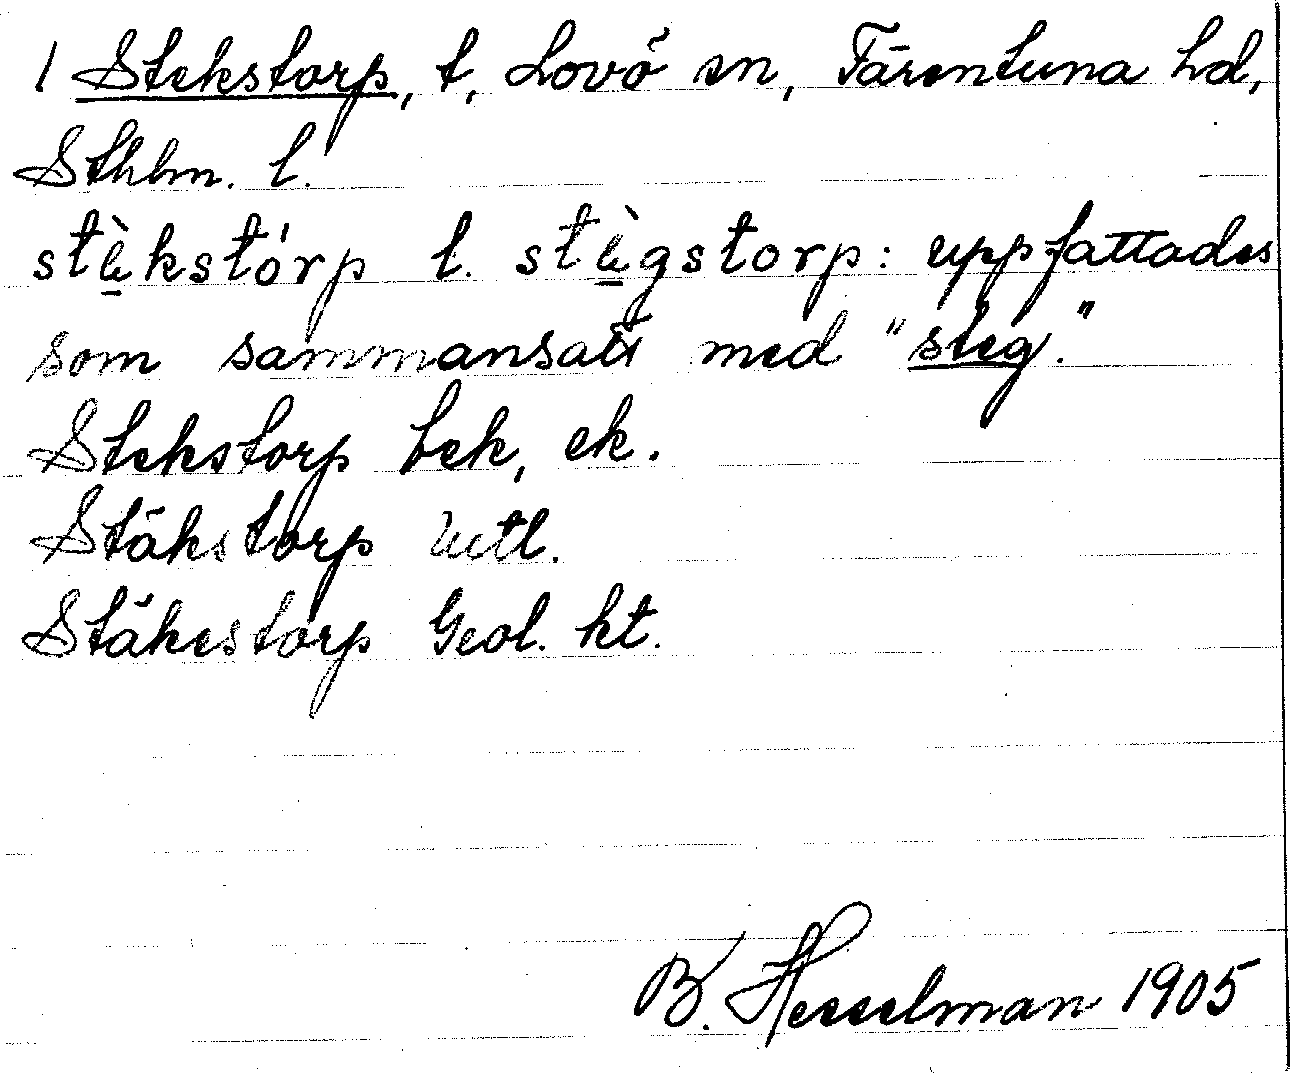 1 Stekstorp, t, Lovö sn, Färentuna hd,
Sthlm. l.
stèkstórp l. stègstorp: uppfattades
som sammansatt med "steg".
Stekstorp bek, ek.
Stäkstorp utl.
Stäkestorp Geol. kt.
B. Hesselman 1905